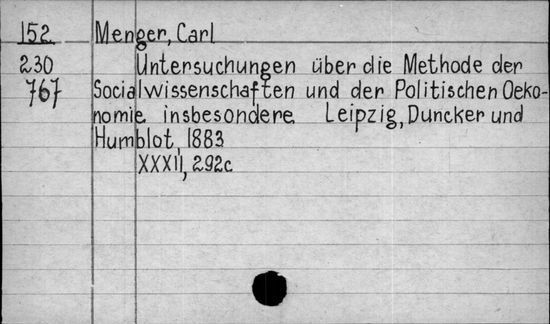 152 Menger, Carl
230 Untersuchungen über die Methode der
767 Socialwissenschaften und der Politischen Oeko-
nomie insbesondere Leipzig, Duncker und
Humblot, 1883
XXXII, 292c